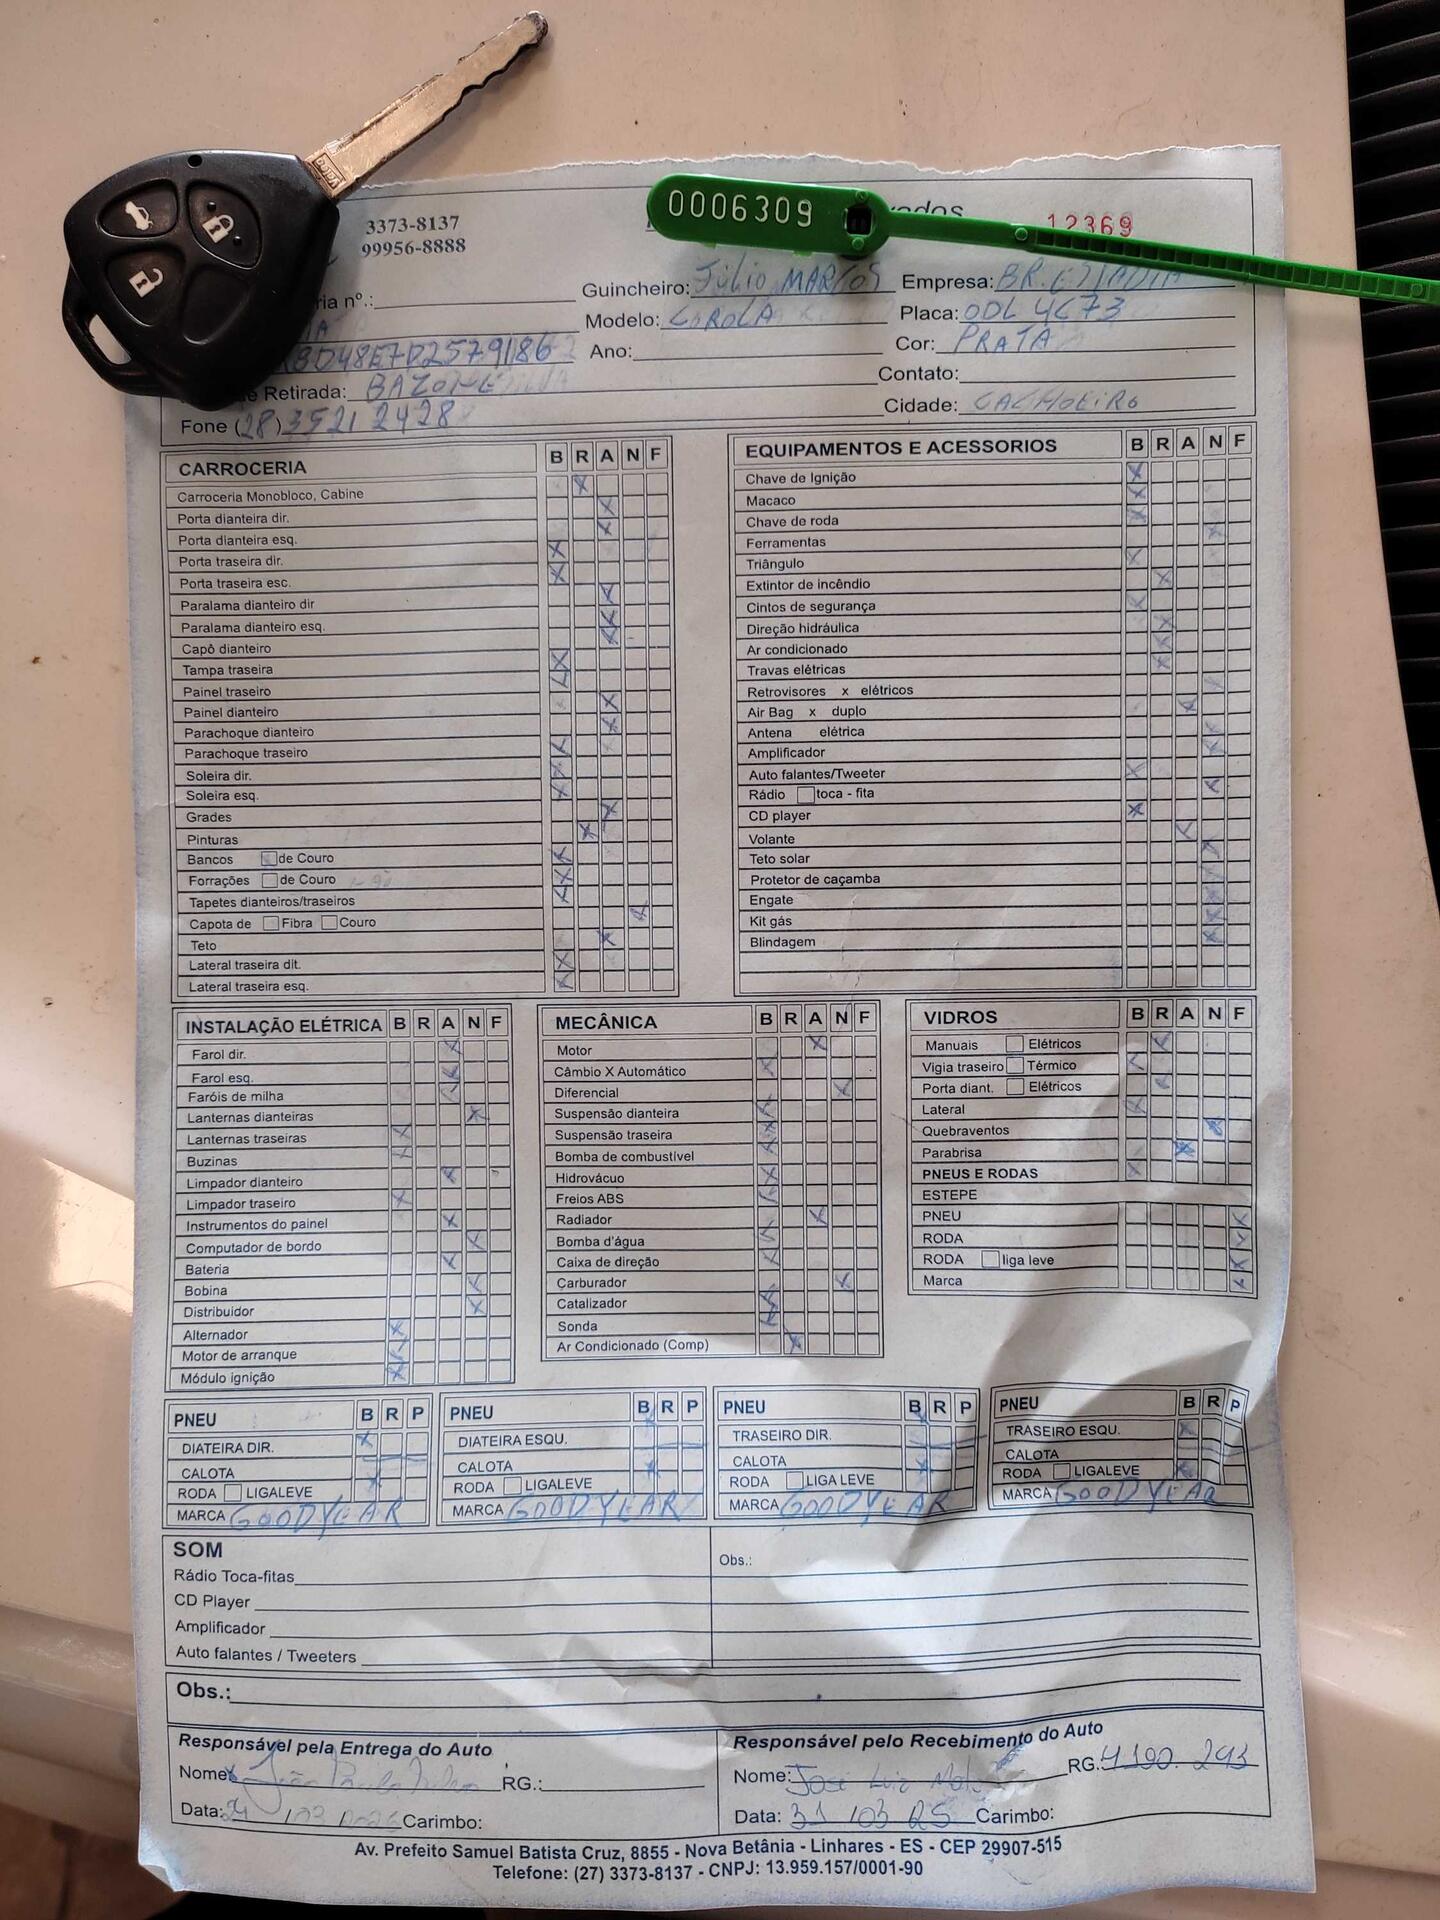 0006309
12369
3373-8137
99956-8888
nº.: Guincheiro: Júlio MARCOS Empresa: BR.
Modelo: COROLA Placa: ODL 4C73
BD48E7D2579186 Ano: Cor: PRATA
Retirada: Contato:
Fone (28) 3521 2428 Cidade: CACHOEIRO
CARROCERIA B R A N F
Carroceria Monobloco, Cabine X
Porta dianteira dir. X
Porta dianteira esq. X
Porta traseira dir. X
Porta traseira esc. X
Paralama dianteiro dir X
Paralama dianteiro esq. X
Capô dianteiro X
Tampa traseira X
Painel traseiro X
Painel dianteiro X
Parachoque dianteiro X
Parachoque traseiro X
Soleira dir. X
Soleira esq. X
Grades X
Pinturas X
Bancos de Couro X
Forrações de Couro X
Tapetes dianteiros/traseiros X
Capota de Fibra Couro X
Teto X
Lateral traseira dit. X
Lateral traseira esq. X
EQUIPAMENTOS E ACESSORIOS B R A N F
Chave de Ignição X
Macaco X
Chave de roda X
Ferramentas X
Triângulo X
Extintor de incêndio X
Cintos de segurança X
Direção hidráulica X
Ar condicionado X
Travas elétricas X
Retrovisores x elétricos
Air Bag x duplo X
Antena elétrica X
Amplificador X
Auto falantes/Tweeter X
Rádio toca - fita X
CD player X
Volante X
Teto solar X
Protetor de caçamba X
Engate X
Kit gás X
Blindagem X
INSTALAÇÃO ELÉTRICA B R A N F
Farol dir. X
Farol esq. X
Faróis de milha X
Lanternas dianteiras X
Lanternas traseiras X
Buzinas X
Limpador dianteiro X
Limpador traseiro X
Instrumentos do painel X
Computador de bordo X
Bateria X
Bobina X
Distribuidor X
Alternador X
Motor de arranque X
Módulo ignição X
MECÂNICA B R A N F
Motor X
Câmbio X Automático X
Diferencial X
Suspensão dianteira X
Suspensão traseira X
Bomba de combustível X
Hidrovácuo X
Freios ABS X
Radiador X
Bomba d'água X
Caixa de direção X
Carburador X
Catalizador X
Sonda X
Ar Condicionado (Comp) X
VIDROS B R A N F
Manuais Elétricos X
Vigia traseiro Térmico X
Porta diant. Elétricos X
Lateral X
Quebraventos X
Parabrisa X
PNEUS E RODAS X
ESTEPE
PNEU X
RODA X
RODA liga leve X
Marca X
PNEU B R P
DIATEIRA DIR. X
CALOTA
RODA LIGALEVE X
MARCA GOODYEAR
PNEU B R P
DIATEIRA ESQU. X
CALOTA
RODA LIGALEVE X
MARCA GOODYEAR
PNEU B R P
TRASEIRO DIR. X
CALOTA
RODA LIGA LEVE X
MARCA GOODYEAR
PNEU B R P
TRASEIRO ESQU. X
CALOTA
RODA LIGALEVE X
MARCA GOODYEAR
SOM
Rádio Toca-fitas
CD Player
Amplificador
Auto falantes / Tweeters
Obs.:
Obs.:
Responsável pela Entrega do Auto
Nome: João Paulo RG.:
Data: Carimbo:
Responsável pelo Recebimento do Auto
Nome: José Luiz RG. 4190.293
Data: 31 / 03 25 Carimbo:
Av. Prefeito Samuel Batista Cruz, 8855 - Nova Betânia - Linhares - ES - CEP 29907-515
Telefone: (27) 3373-8137 - CNPJ: 13.959.157/0001-90